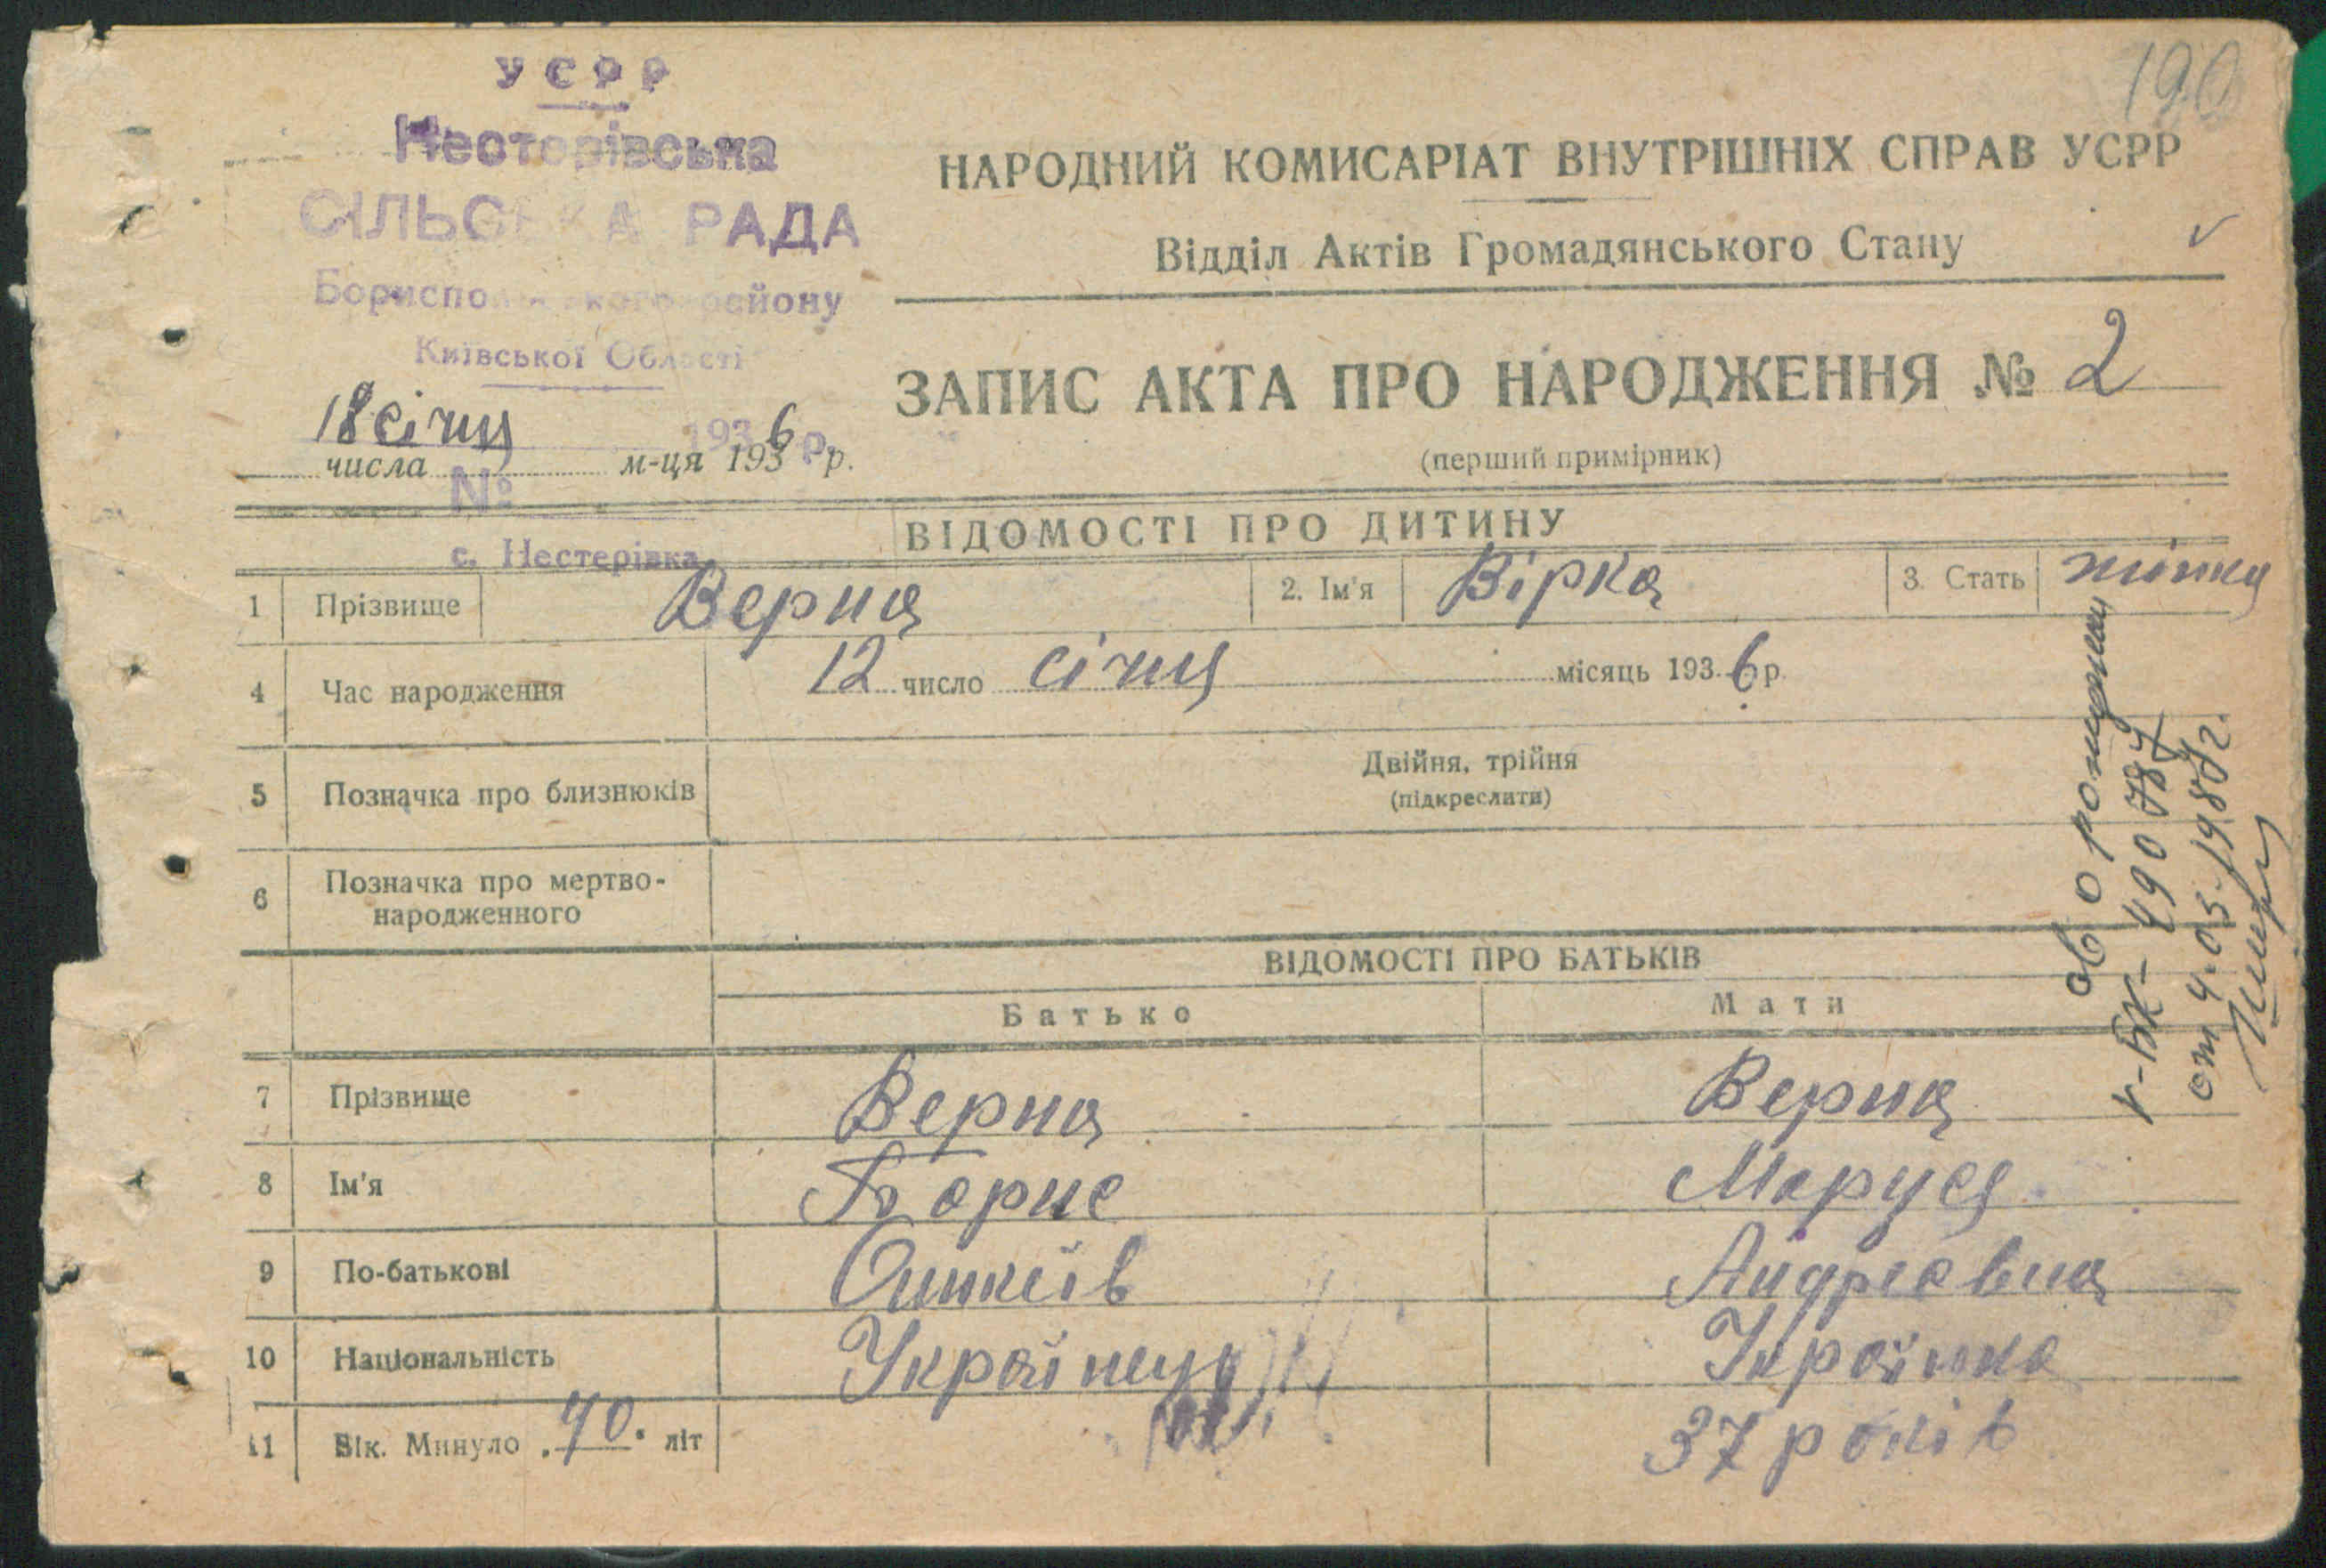 190
УСРР
Нестерівська
СІЛЬСЬКА РАДА
Бориспільського району
Київської Області
18 січня 1936 р.
числа м-ця 1936 р.
№
с. Нестерівка
НАРОДНИЙ КОМИСАРІАТ ВНУТРІШНІХ СПРАВ УСРР
Відділ Актів Громадянського Стану
ЗАПИС АКТА ПРО НАРОДЖЕННЯ № 2
(перший примірник)
ВІДОМОСТІ ПРО ДИТИНУ
1 Прізвище Верна 2. Ім'я Вірка 3. Стать жінка
4 Час народження 12 число січня місяць 1936 р.
5 Позначка про близнюків Двійня, трійня
(підкреслити)
6 Позначка про мертво-
народженного
ВІДОМОСТІ ПРО БАТЬКІВ
Батько Мати
7 Прізвище Верна Верна
8 Ім'я Борис Маруся
9 По-батькові Андреєвна
10 Національність Українец Українка
11 Вік. Минуло 40 літ 37 років
св о рождении
V-БК- 490787
от 4.03.1987г.